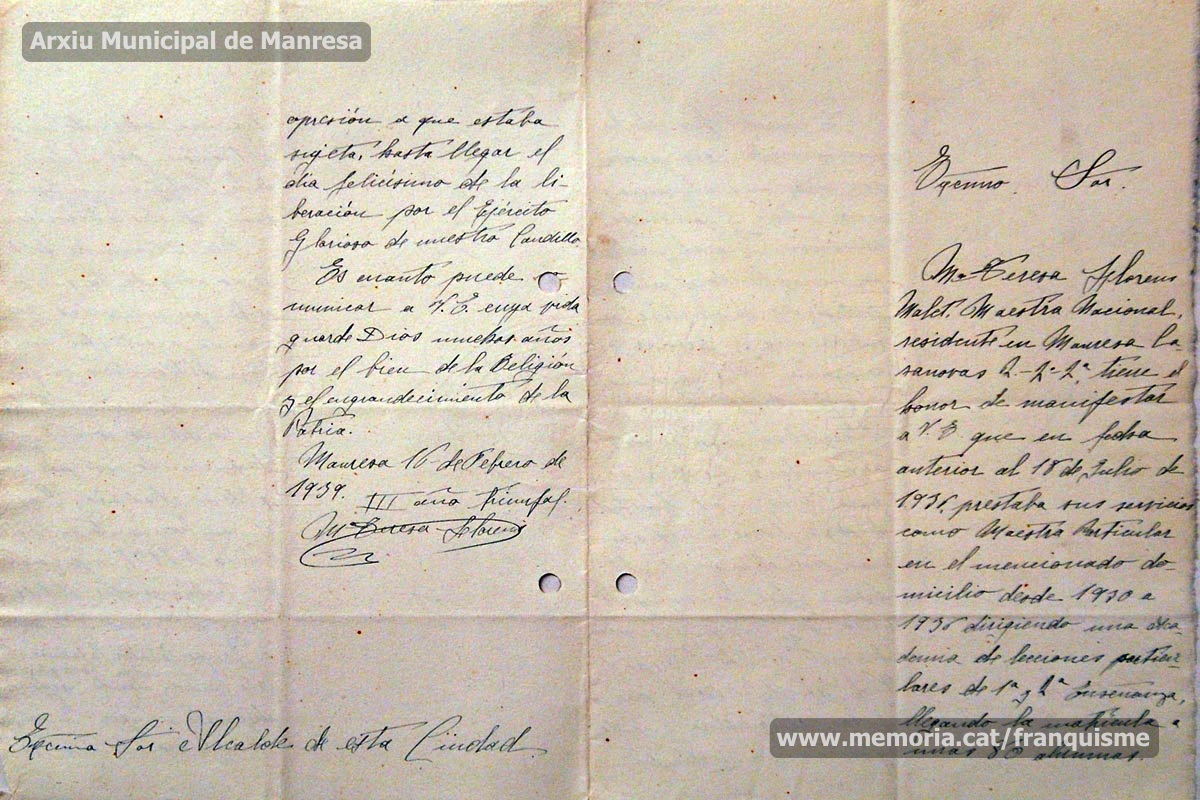 Arxiu Municipal de Manresa
opresión a que estaba
sujeta, hasta llegar el
día felicísimo de la li-
beración por el Ejército
Glorioso de nuestro Caudillo
Es cuanto puede co
municar a V.E. cuya vida
guarde Dios muchos años
por el bien de la Religión
y el engrandecimiento de la
Patria.
Manresa 16 de Febrero de
1939. III año triunfal.
Mª Teresa Llorens
Excmo Sor Alcalde de esta Ciudad
Excmo. Sor.
Mª Teresa Llorens
Malet. Maestra Nacional,
residente en Manresa Ca
sanovas 2.-2º-2ª, tiene el
honor de manifestar
a V.E. que en fecha
anterior al 18 de Julio de
1936 prestaba sus servicios
como Maestra Particular
en el mencionado do-
micilio desde 1930 a
1936 dirigiendo una Aca-
demia de lecciones particu-
lares de 1ª y 2ª Enseñanza,
llegando la matrícula a
unas 80 alumnas.
www.memoria.cat/franquisme